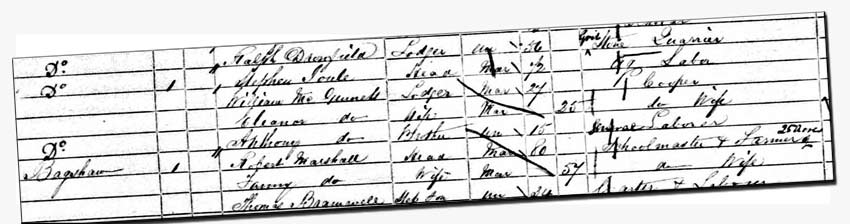 Do Ralph Dronfield Lodger Un 56 Stone Quarrier
Do 1 Stephen Poule Head Mar 72 Ag Labor
William Mc Gennett Lodger Mar 27 Cooper
Eleanor do Wife Mar 25 do Wife
Anthony do Brother Un 15 General Laborer
Do 1 Robert Marshall Head Mar 60 Schoolmaster & Farmer 25 acres
Bagshaw Fanny do Wife Mar 57 do Wife
Thomas Bramwell Step Son Un Carter & Laborer